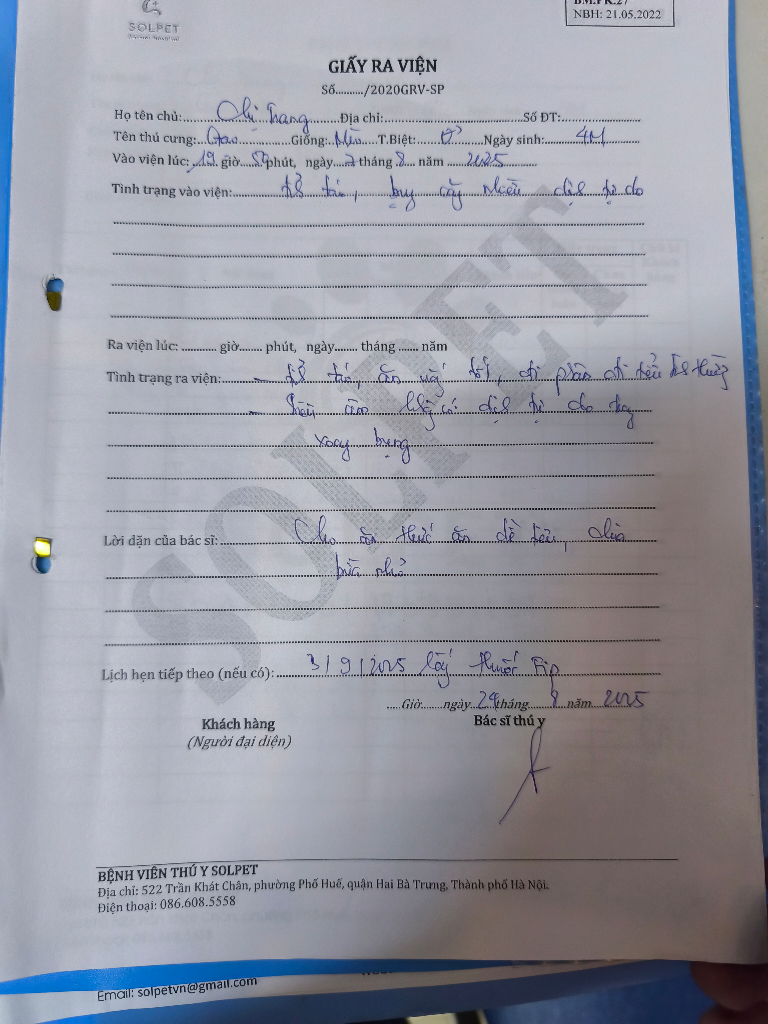 SOLPET
BM.PK.27
NBH: 21.05.2022
GIẤY RA VIỆN
Số........../2020GRV-SP
Họ tên chủ: Chị Trang Địa chỉ: Số ĐT:
Tên thú cưng: Gạo Giống: Mèo T.Biệt: Ngày sinh: 4M
Vào viện lúc: 19 giờ phút, ngày 7 tháng 8 năm 2025
Tình trạng vào viện: tỉnh táo, bụng căng nhiều dịch tự do
Ra viện lúc: giờ phút, ngày tháng năm
Tình trạng ra viện: - tỉnh táo, ăn uống tốt, đi phân đi tiểu bt thường
- Siêu âm không có dịch tự do trong
xoang bụng
Lời dặn của bác sĩ: Cho ăn thức ăn dễ tiêu, chia
bữa nhỏ
Lịch hẹn tiếp theo (nếu có): 3/9/2025 lấy thuốc Fip
Giờ ngày 24 tháng 8 năm 2025
Khách hàng Bác sĩ thú y
(Người đại diện)
BỆNH VIỆN THÚ Y SOLPET
Địa chỉ: 522 Trần Khát Chân, phường Phố Huế, quận Hai Bà Trưng, Thành phố Hà Nội.
Điện thoại: 086.608.5558
Email: solpetvn@gmail.com